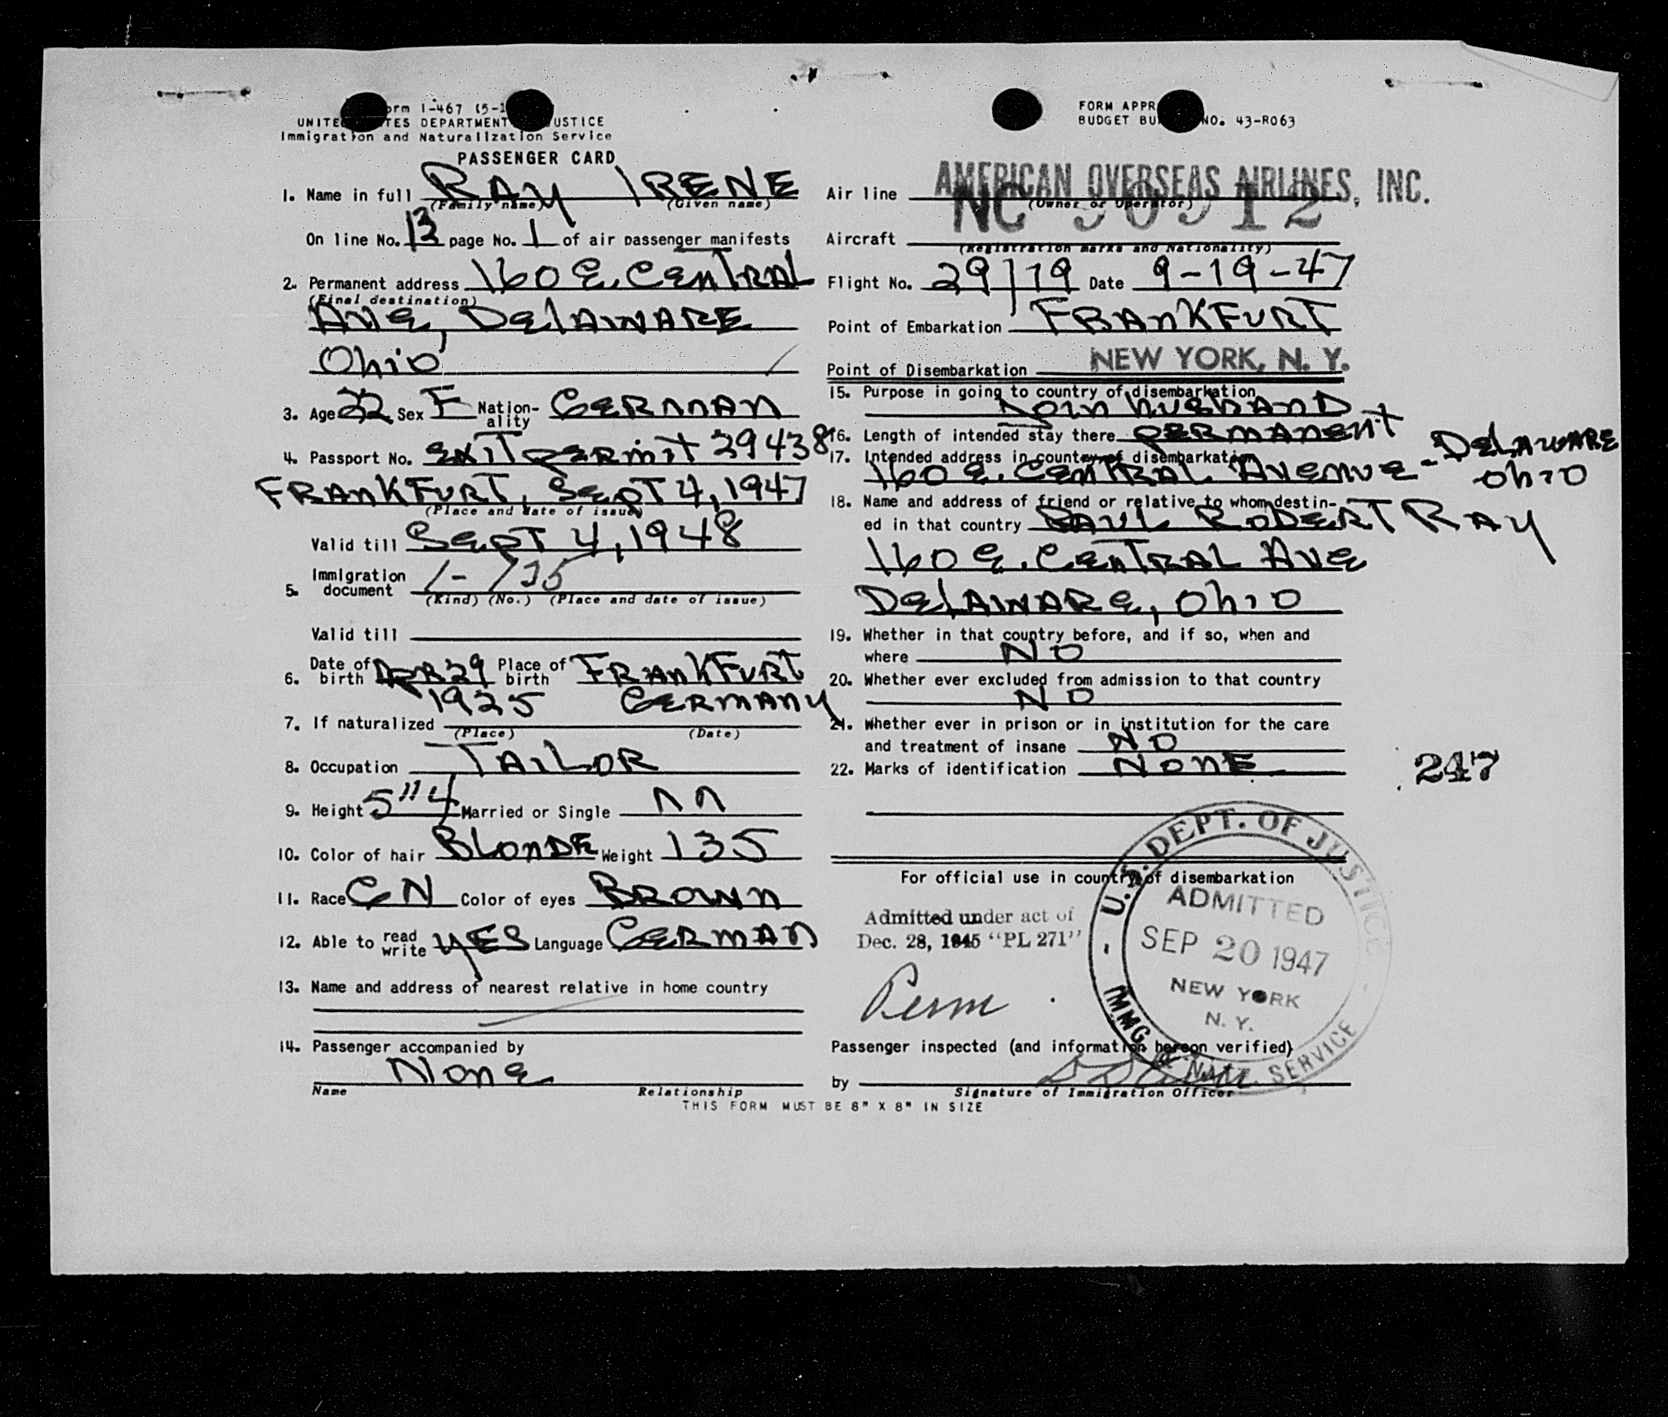 Form I-467 (5-1
UNITE TES DEPARTMENT USTICE
Immigration and Naturalization Service
FORM APPR
BUDGET BU NO. 43-R063
PASSENGER CARD
1. Name in full RAY IRENE
(Family name) (Given name)
On line No. 13 page No. 1 of air passenger manifests
2. Permanent address 160 E. CENTRAL
(Final destination)
AVE, DELAWARE
Ohio
3. Age 22 Sex F Nation-ality GERMAN
4. Passport No. EXIT PERMIT 29438
FRANKFURT, SEPT 4, 1947
(Place and date of issue)
Valid till SEPT 4, 1948
5. Immigration document
(Kind) (No.) (Place and date of issue)
Valid till
6. Date of birth APR 29 Place of birth FRANKFURT
1925 GERMANY
7. If naturalized
(Place) (Date)
8. Occupation TAILOR
9. Height 5"4 Married or Single M
10. Color of hair BLONDE Weight 135
11. Race GN Color of eyes BROWN
12. Able to read write YES Language GERMAN
13. Name and address of nearest relative in home country
14. Passenger accompanied by
None
Name Relationship
Air line AMERICAN OVERSEAS AIRLINES, INC.
(Owner or Operator)
Aircraft NC 90912
(Registration marks and Nationality)
Flight No. 29/19 Date 9-19-47
Point of Embarkation FRANKFURT
Point of Disembarkation NEW YORK, N. Y.
15. Purpose in going to country of disembarkation
JOIN HUSBAND
16. Length of intended stay there PERMANENT
17. Intended address in country of disembarkation
160 E. CENTRAL AVENUE - DELAWARE
OHIO
18. Name and address of friend or relative to whom destin-
ed in that country PAUL ROBERT RAY
160 E. CENTRAL AVE
DELAWARE, OHIO
19. Whether in that country before, and if so, when and
where NO
20. Whether ever excluded from admission to that country
NO
21. Whether ever in prison or in institution for the care
and treatment of insane NO
22. Marks of identification NONE
247
For official use in country of disembarkation
Admitted under act of
Dec. 28, 1945 "PL 271"
Perm
U.S. DEPT. OF JUSTICE
ADMITTED
SEP 20 1947
NEW YORK
N. Y.
IMMG. & NATZ. SERVICE
Passenger inspected (and information hereon verified)
by
Signature of Immigration Officer
THIS FORM MUST BE 8" X 8" IN SIZE